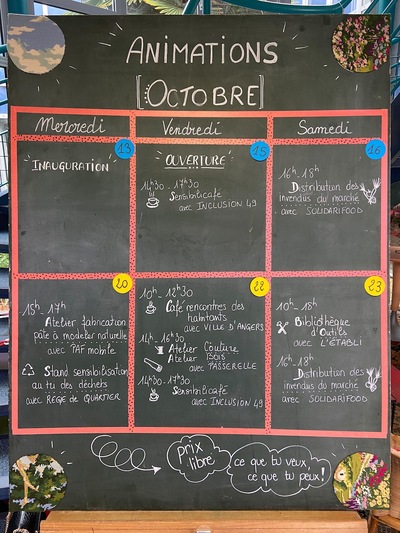 ANIMATIONS
[OCTOBRE]
Mercredi
Vendredi
Samedi
13
INAUGURATION
15
OUVERTURE
14h30 - 17h30
Sensibilicafé
avec INCLUSION 49
16
16h - 18h
Distribution des
invendus du marché
avec SOLIDARIFOOD
20
15h - 17h
Atelier fabrication
pâte à modeler naturelle
avec PAF mobile
Stand sensibilisation
au tri des déchets
avec RÉGIE de QUARTIER
22
10h - 12h30
Café rencontres des
habitants
avec VILLE D'ANGERS
14h - 16h30
Atelier Couture
Atelier BOIS
avec PASSERELLE
14h30 - 17h30
Sensibilicafé
avec INCLUSION 49
23
10h - 18h
Bibliothèque
d'Outils
avec L'ÉTABLI
16h - 18h
Distribution des
invendus du marché
avec SOLIDARIFOOD
prix
libre
ce que tu veux,
ce que tu peux!